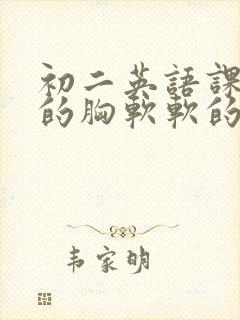 初二英語課
的胸軟軟的
韦家明